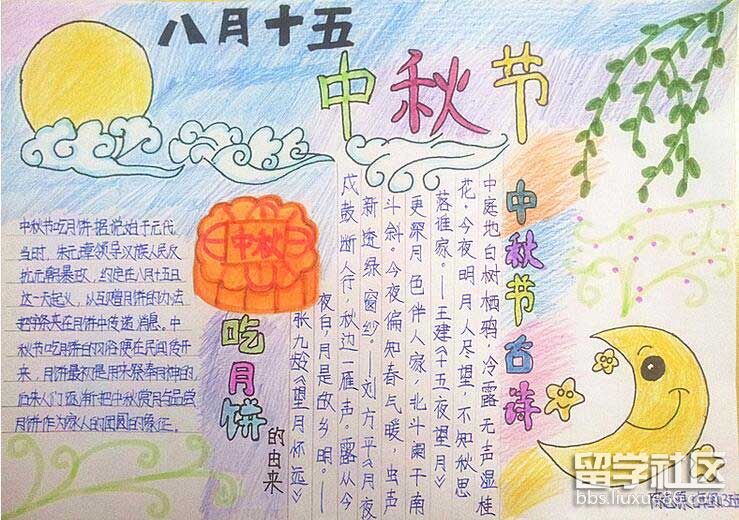 八月十五
中秋节
中秋节吃月饼据说始于元代
当时,朱元璋领导汉族人民反
抗元朝暴政,约定在八月十五日
这一天起义,以互赠月饼的办法
把字条夹在月饼中传递消息。中
秋节吃月饼的习俗便在民间传开
来,月饼最初是用来祭奉月神的
后来人们逐渐把中秋赏月与品尝
月饼作为家人的团圆的象征。
中秋
吃月饼
的由来
中秋节古诗
中庭地白树栖鸦,冷露无声湿桂
花。今夜明月人尽望,不知秋思
落谁家。—王建《十五夜望月》
更深月色伴人家,北斗阑干南
斗斜。今夜偏知春气暖,虫声
新透绿窗纱。—刘方平《月夜
戍鼓断人行,秋边一雁声。露从今
夜白,月是故乡明。—
张九龄《望月怀远》
留学社区
bbs.liuxue86.com